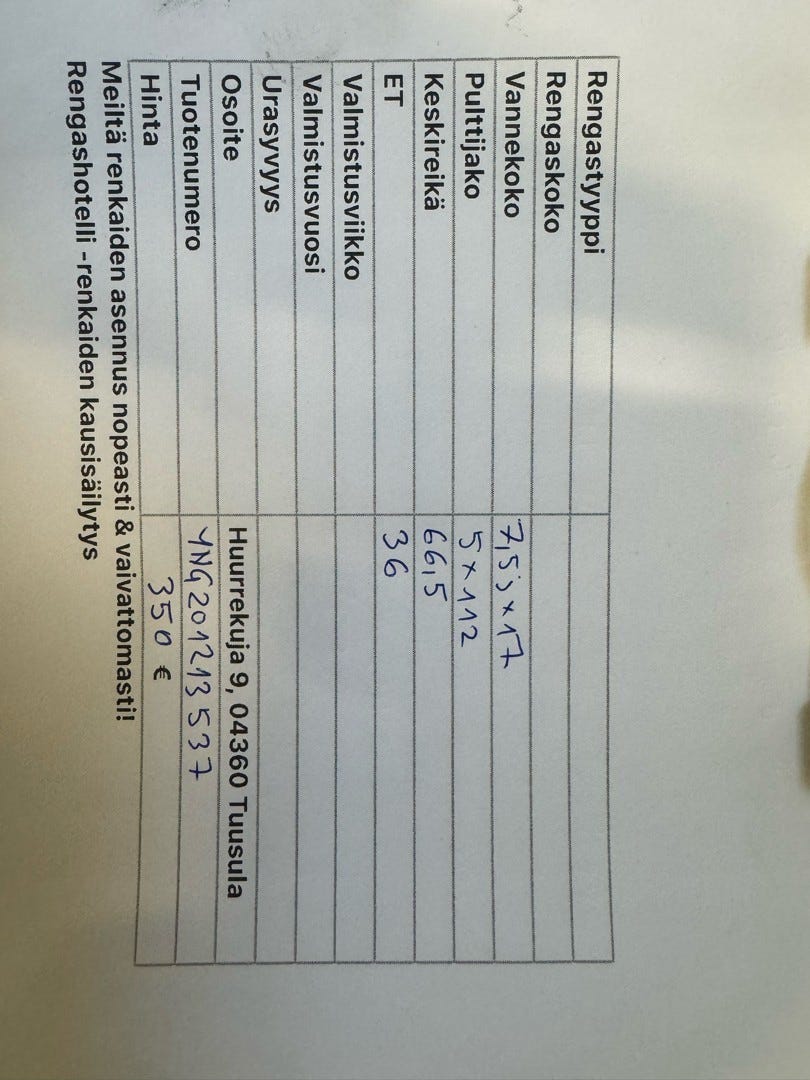 Rengastyyppi
Rengaskoko
Vannekoko 7,5j x 17
Pulttijako 5 x 112
Keskireikä 66,5
ET 36
Valmistusviikko
Valmistusvuosi
Urasyvyys
Osoite Huurrekuja 9, 04360 Tuusula
Tuotenumero YNG201213537
Hinta 350 €
Meiltä renkaiden asennus nopeasti & vaivattomasti!
Rengashotelli -renkaiden kausisäilytys